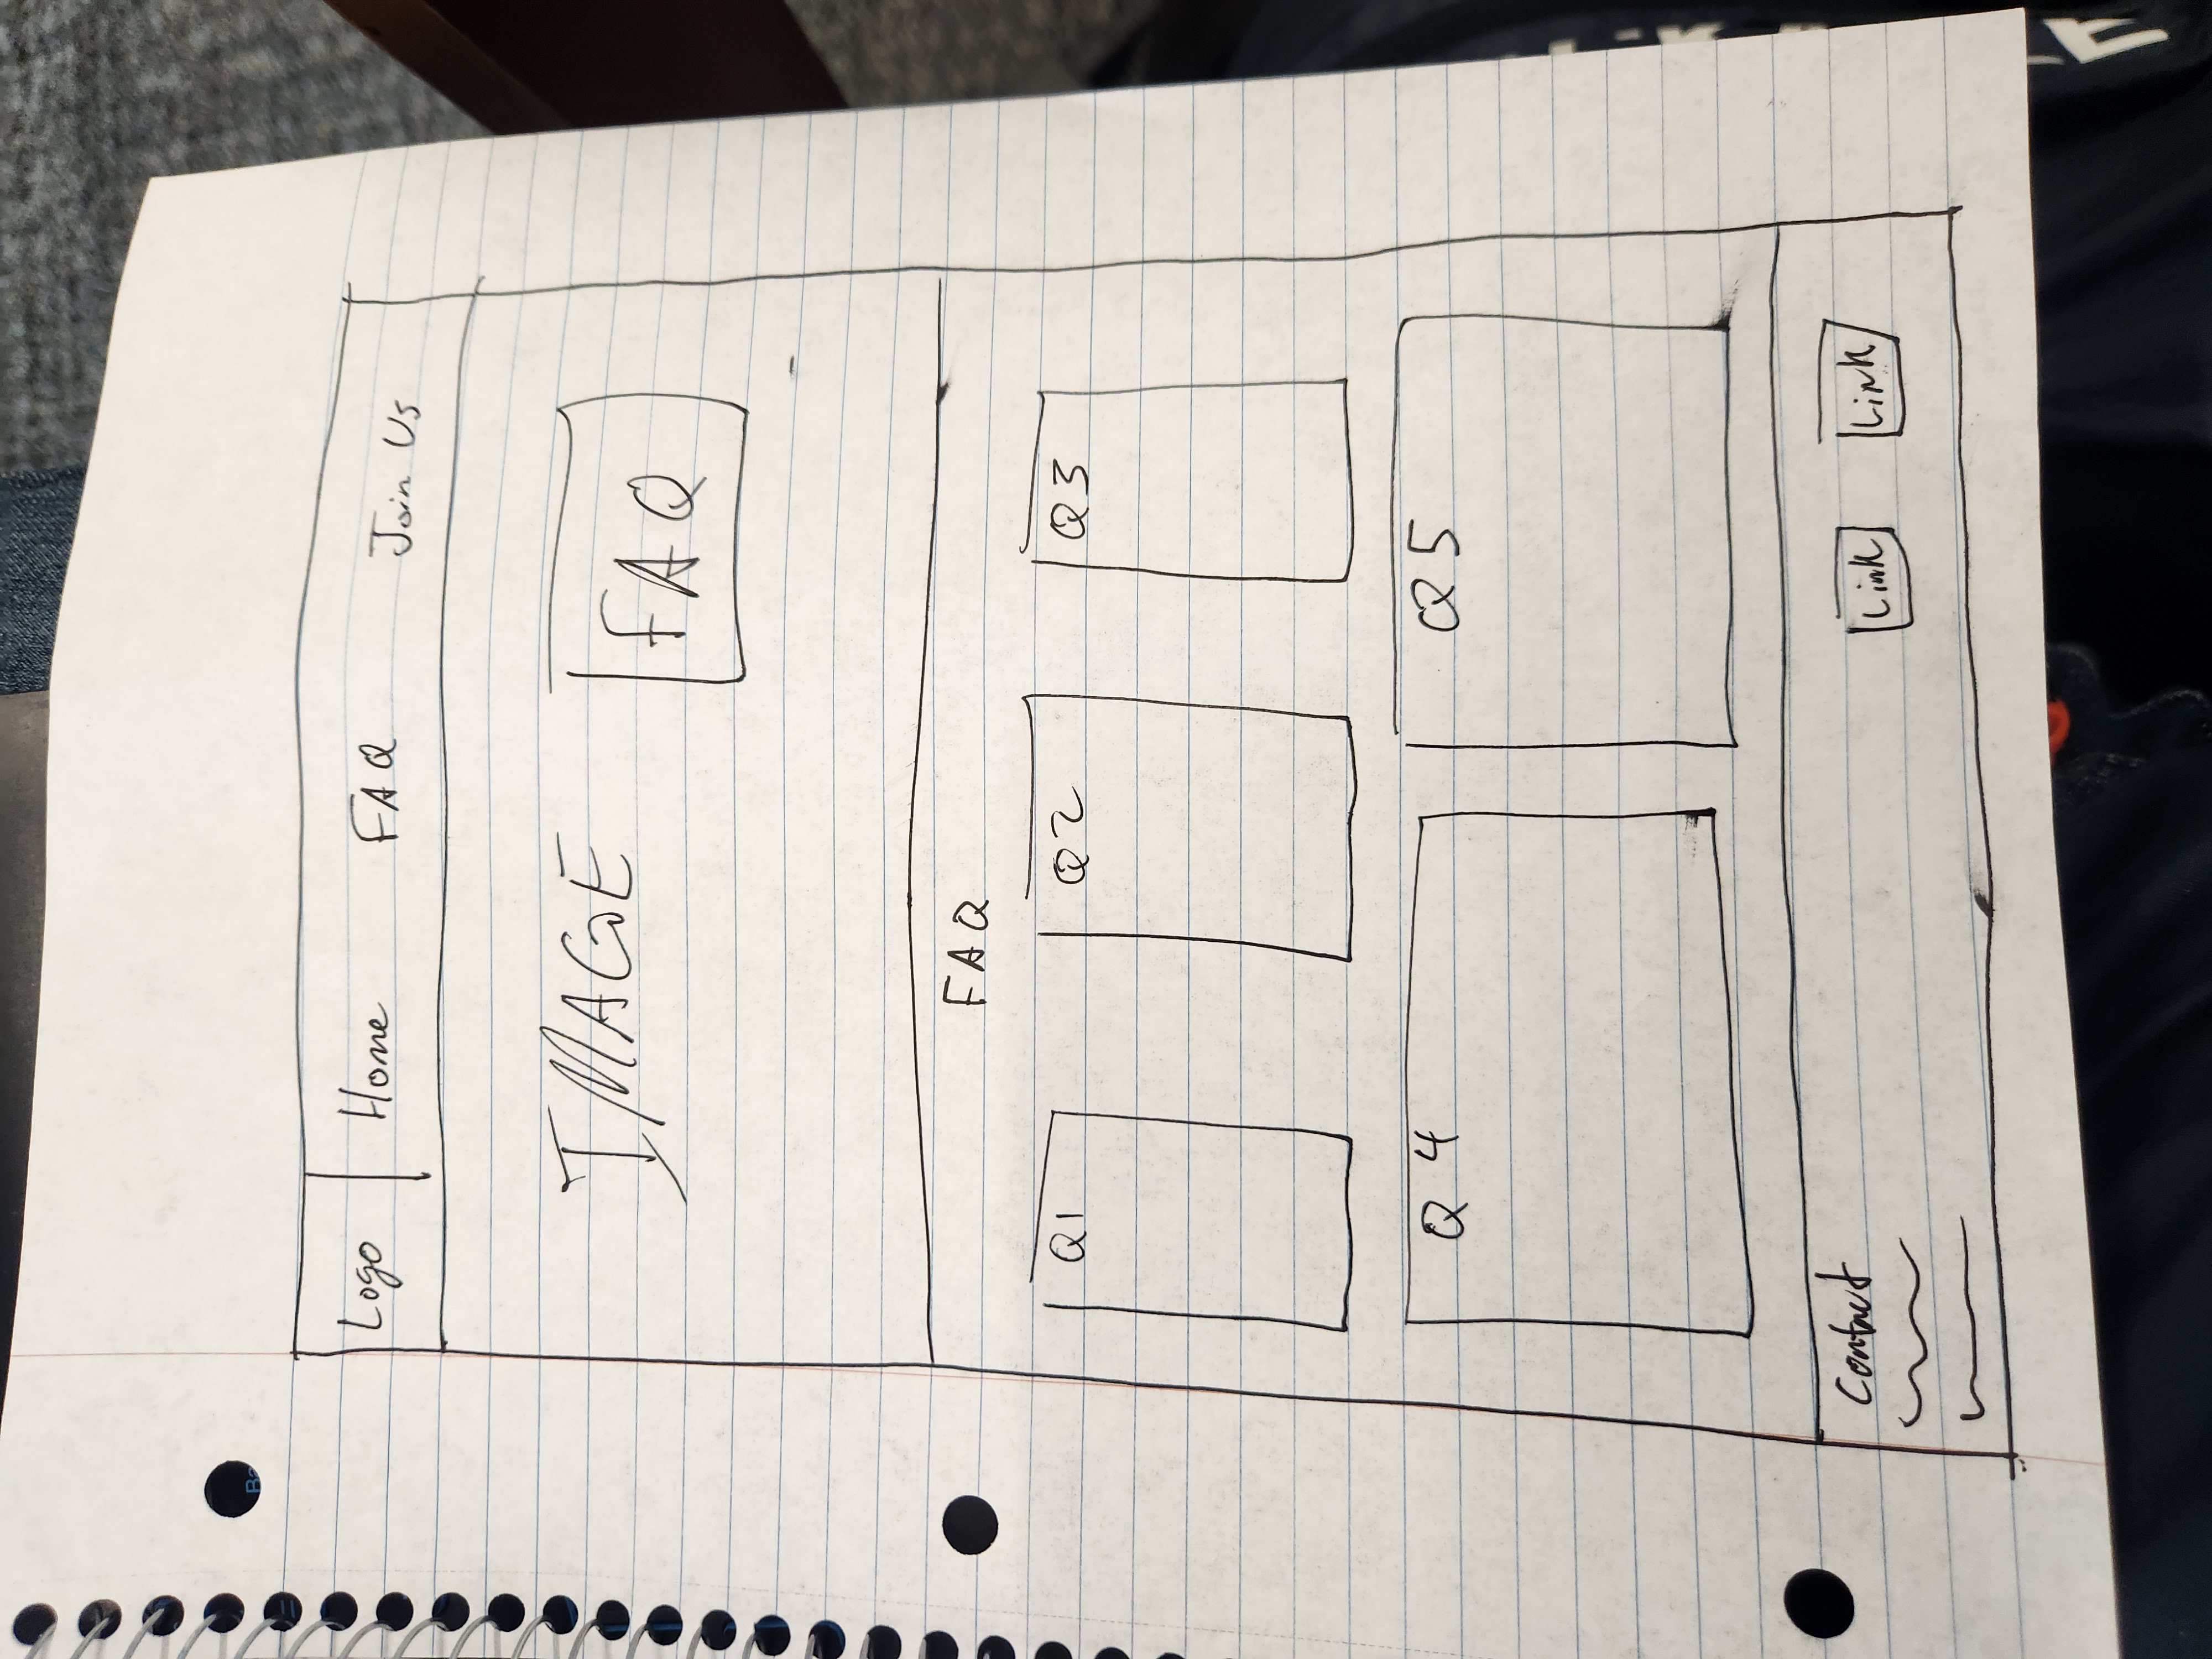 Logo Home FAQ Join Us
IMAGE FAQ
FAQ
Q1 Q2 Q3
Q4 Q5
Contact Link Link